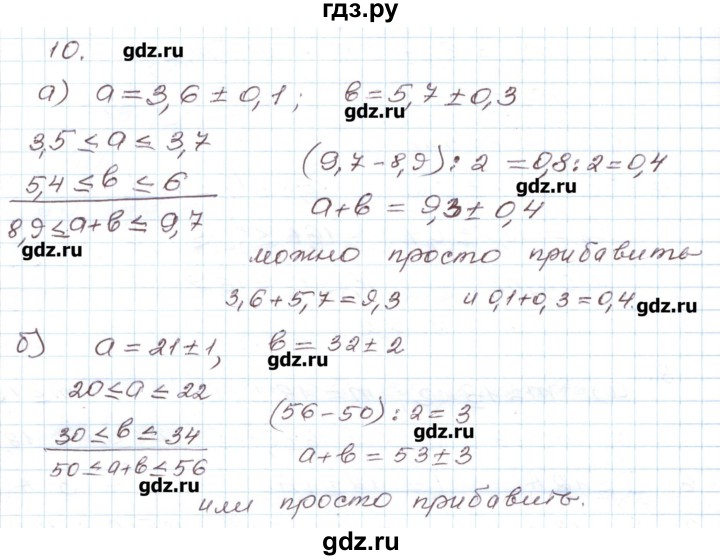 гдз.ру
10. gdz.ru
а) a = 3,6 ± 0,1; в = 5,7 ± 0,3
gdz.ru
3,5 ≤ a ≤ 3,7
5,4 ≤ в ≤ 6
8,9 ≤ a+в ≤ 9,7
gdz.ru
(9,7 - 8,9) : 2 = 0,8 : 2 = 0,4
gdz.ru
a+в = 9,3 ± 0,4
можно просто прибавить
3,6 + 5,7 = 9,3 и 0,1 + 0,3 = 0,4. gdz.ru
б) a = 21 ± 1, в = 32 ± 2
gdz.ru
20 ≤ a ≤ 22
30 ≤ в ≤ 34
50 ≤ a+в ≤ 56
gdz.ru
(56 - 50) : 2 = 3
gdz.ru
a+в = 53 ± 3
или просто прибавить.
gdz.ru